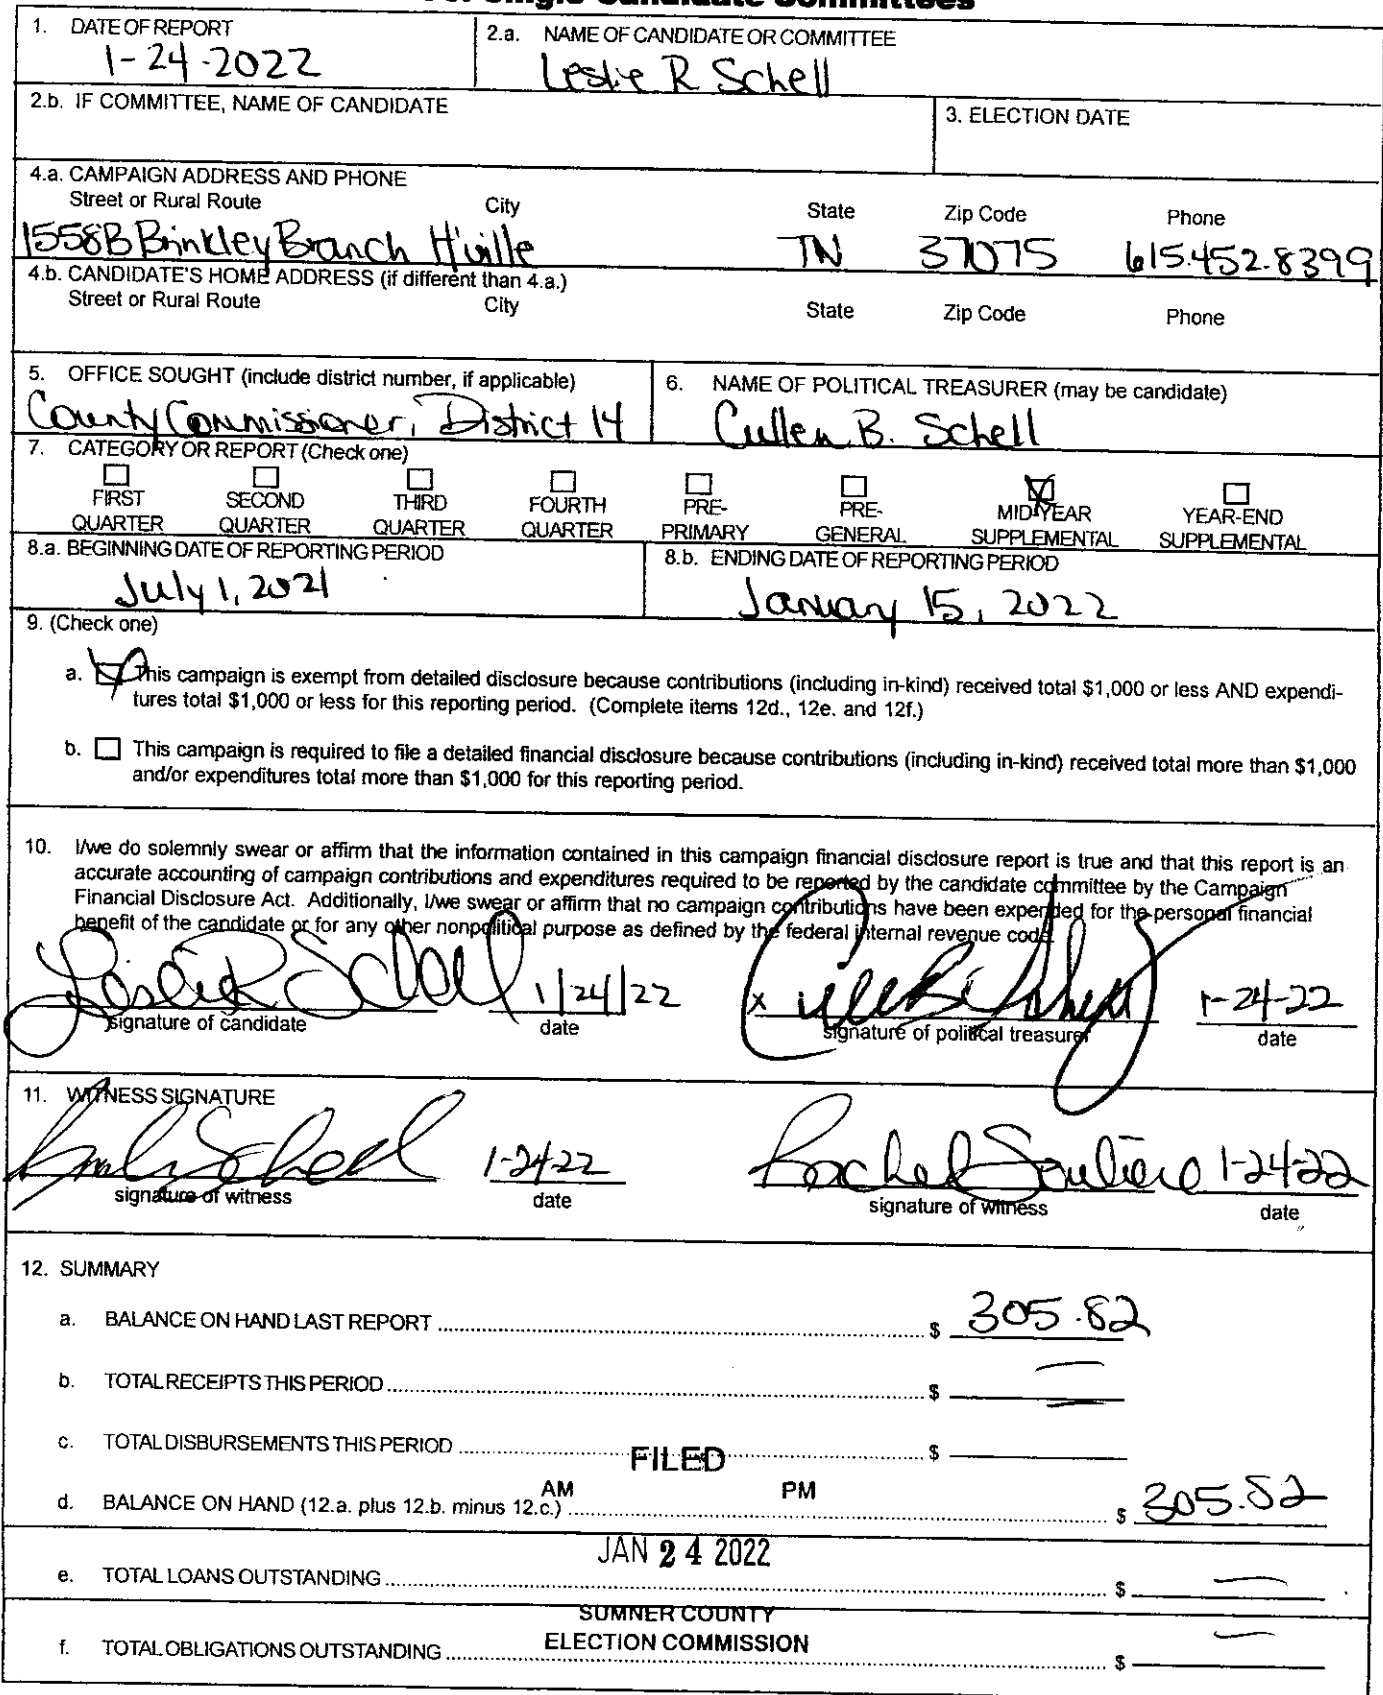 For Single Candidate Committees
1. DATE OF REPORT
1-24-2022
2.a. NAME OF CANDIDATE OR COMMITTEE
Leslie R Schell
2.b. IF COMMITTEE, NAME OF CANDIDATE
3. ELECTION DATE
4.a. CAMPAIGN ADDRESS AND PHONE
Street or Rural Route City State Zip Code Phone
1558B Brinkley Branch H'ville TN 37075 615.452.8399
4.b. CANDIDATE'S HOME ADDRESS (if different than 4.a.)
Street or Rural Route City State Zip Code Phone
5. OFFICE SOUGHT (include district number, if applicable)
County Commissioner, District 14
6. NAME OF POLITICAL TREASURER (may be candidate)
Cullen B. Schell
7. CATEGORY OR REPORT (Check one)
FIRST QUARTER
SECOND QUARTER
THIRD QUARTER
FOURTH QUARTER
PRE-PRIMARY
PRE-GENERAL
MID-YEAR SUPPLEMENTAL
YEAR-END SUPPLEMENTAL
8.a. BEGINNING DATE OF REPORTING PERIOD
July 1, 2021
8.b. ENDING DATE OF REPORTING PERIOD
January 15, 2022
9. (Check one)
a. This campaign is exempt from detailed disclosure because contributions (including in-kind) received total $1,000 or less AND expendi-
tures total $1,000 or less for this reporting period. (Complete items 12d., 12e. and 12f.)
b. This campaign is required to file a detailed financial disclosure because contributions (including in-kind) received total more than $1,000
and/or expenditures total more than $1,000 for this reporting period.
10. I/we do solemnly swear or affirm that the information contained in this campaign financial disclosure report is true and that this report is an
accurate accounting of campaign contributions and expenditures required to be reported by the candidate committee by the Campaign
Financial Disclosure Act. Additionally, I/we swear or affirm that no campaign contributions have been expended for the personal financial
benefit of the candidate or for any other nonpolitical purpose as defined by the federal internal revenue code.
Leslie R Schell 1/24/22 x Cullen B. Schell 1-24-22
signature of candidate date signature of political treasurer date
11. WITNESS SIGNATURE
Schell 1-24-22 Rachel 1-24-22
signature of witness date signature of witness date
12. SUMMARY
a. BALANCE ON HAND LAST REPORT $ 305.82
b. TOTAL RECEIPTS THIS PERIOD $ —
c. TOTAL DISBURSEMENTS THIS PERIOD $ —
FILED
AM PM
d. BALANCE ON HAND (12.a. plus 12.b. minus 12.c.) $ 305.82
JAN 24 2022
e. TOTAL LOANS OUTSTANDING $ —
SUMNER COUNTY
ELECTION COMMISSION
f. TOTAL OBLIGATIONS OUTSTANDING $ —